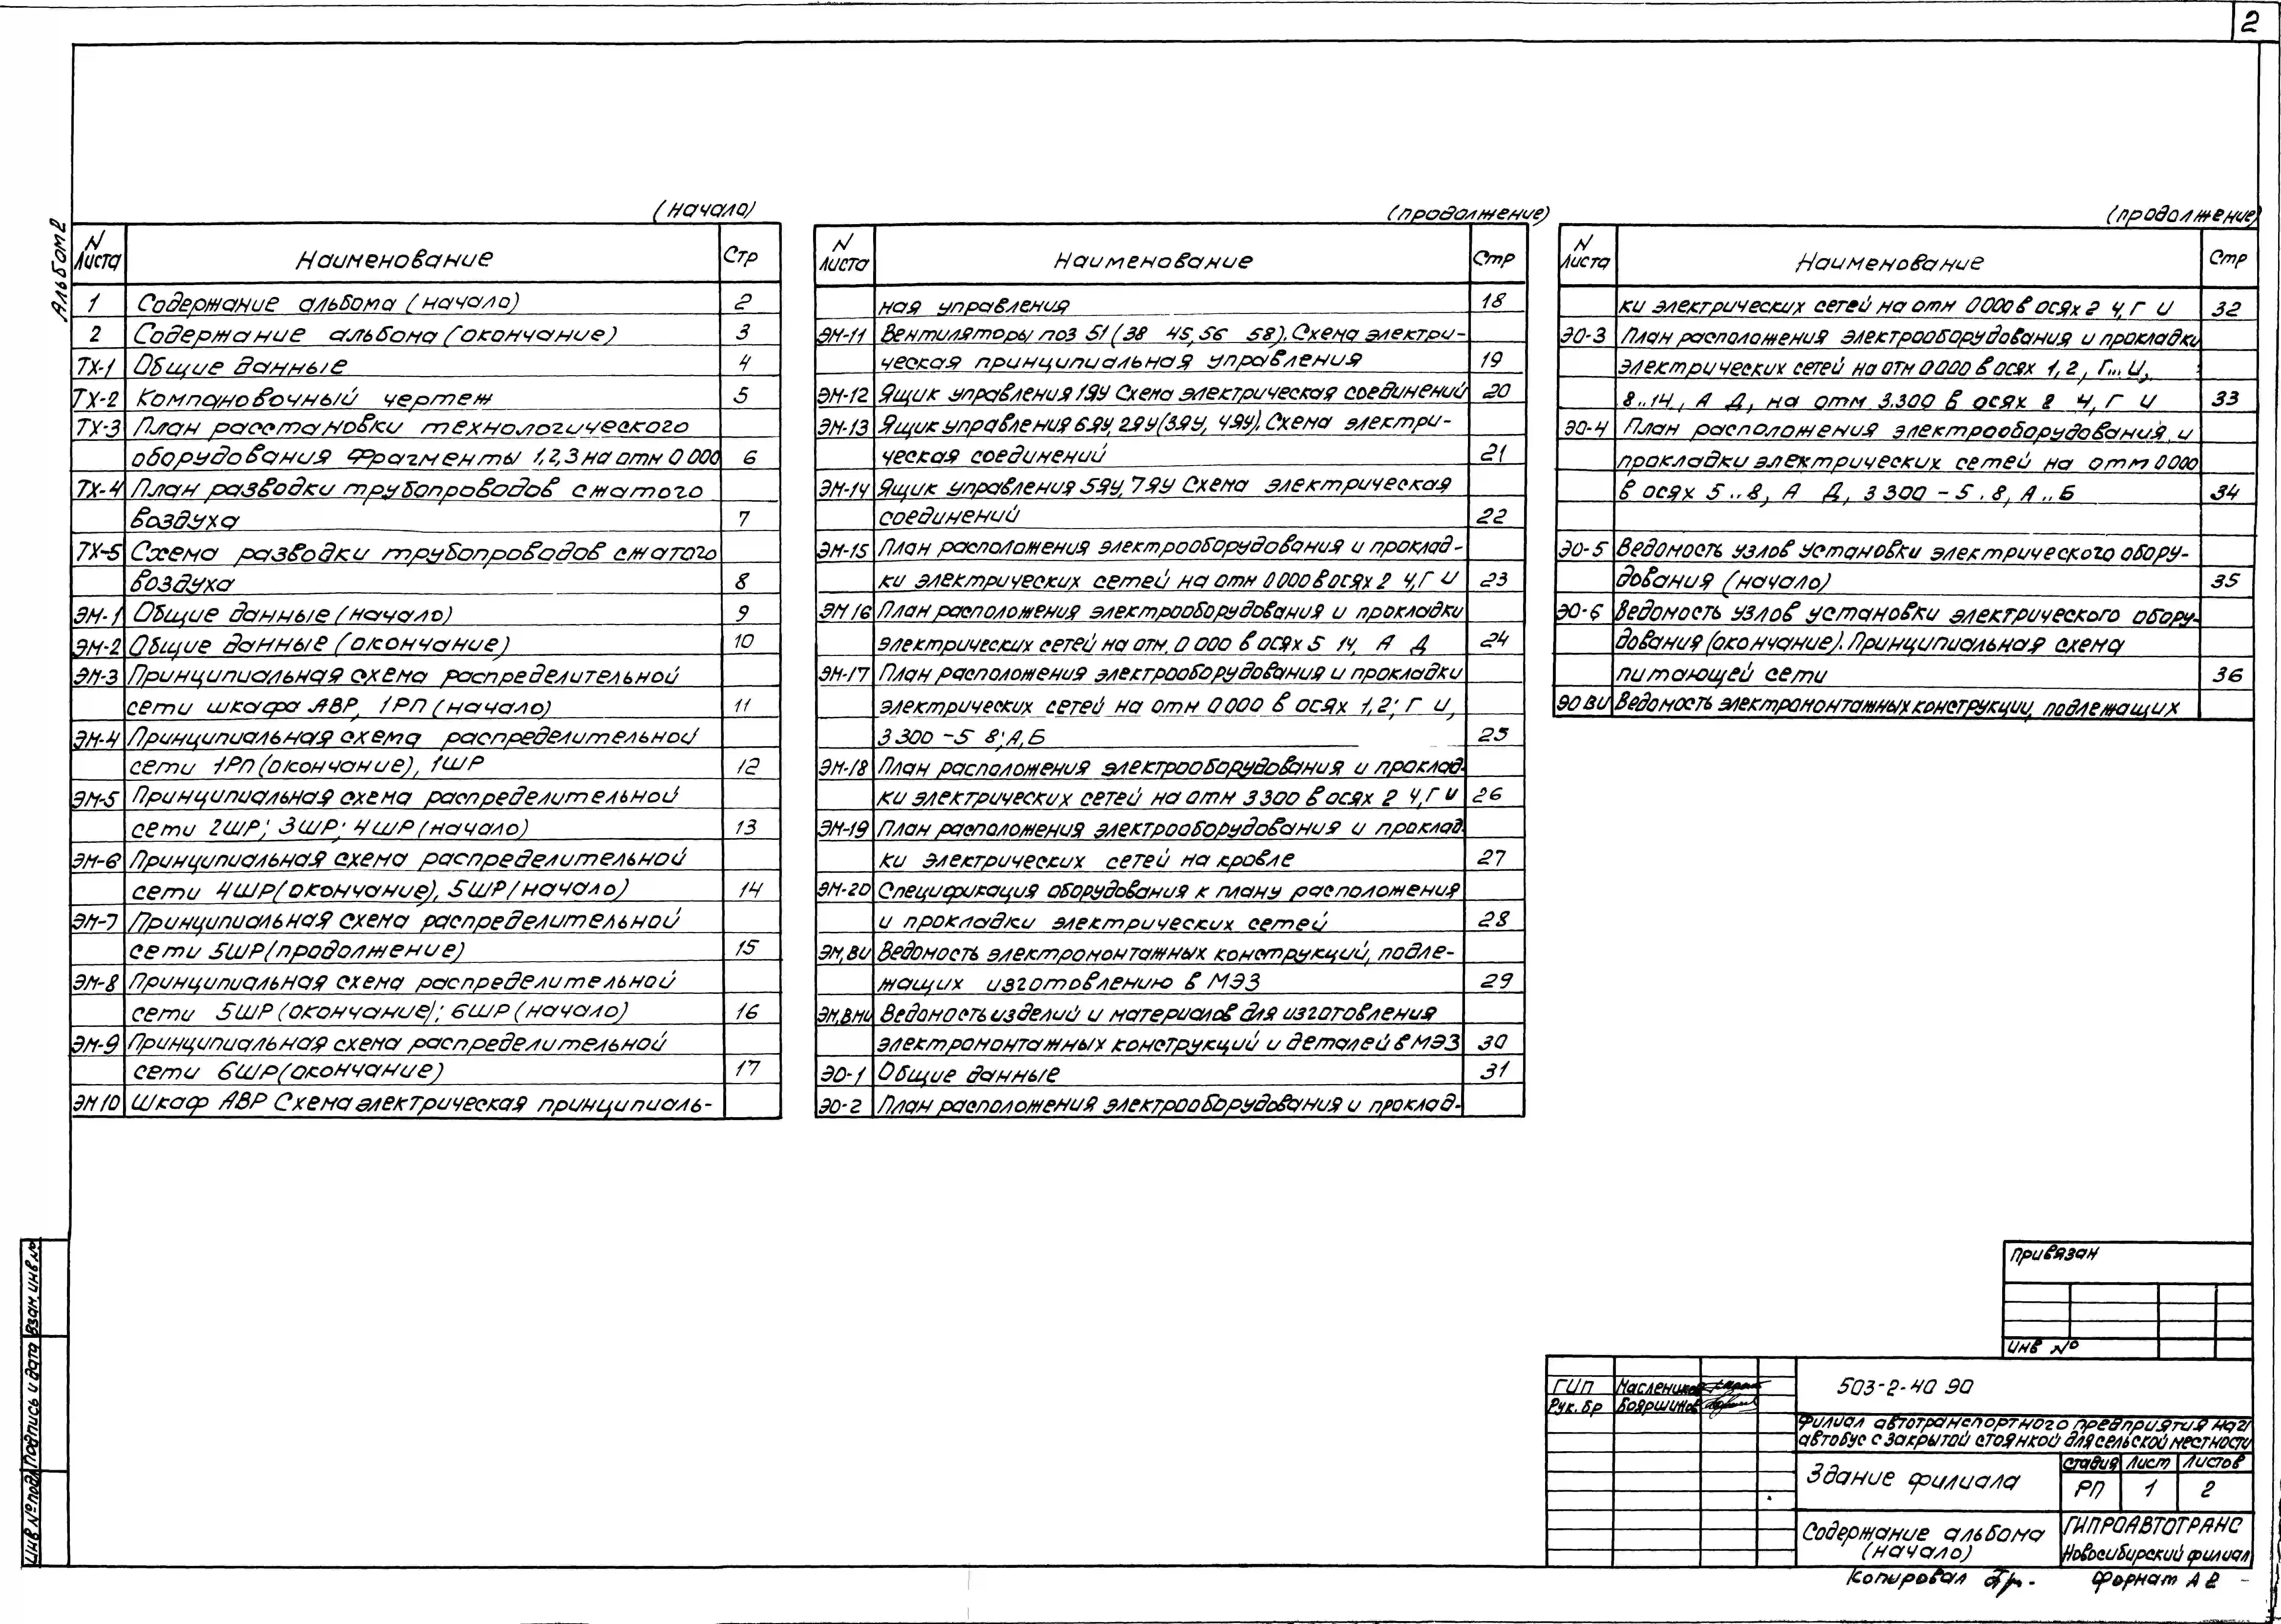 2
Альбом 2
(начало)
N Листа Наименование Стр
1 Содержание альбома (начало) 2
2 Содержание альбома (окончание) 3
ТХ-1 Общие данные 4
ТХ-2 Компановочный чертеж 5
ТХ-3 План расстановки технологического
оборудования Фрагменты 1,2,3 на отм 0 000 6
ТХ-4 План разводки трубопроводов сжатого
воздуха 7
ТХ-5 Схема разводки трубопроводов сжатого
воздуха 8
ЭМ-1 Общие данные (начало) 9
ЭМ-2 Общие данные (окончание) 10
ЭМ-3 Принципиальная схема распределительной
сети шкафа АВР, 1РП (начало) 11
ЭМ-4 Принципиальная схема распределительной
сети 1РП (окончание), 1ШР 12
ЭМ-5 Принципиальная схема распределительной
сети 2ШР; 3ШР; 4ШР (начало) 13
ЭМ-6 Принципиальная схема распределительной
сети 4ШР (окончание), 5ШР (начало) 14
ЭМ-7 Принципиальная схема распределительной
сети 5ШР (продолжение) 15
ЭМ-8 Принципиальная схема распределительной
сети 5ШР (окончание); 6ШР (начало) 16
ЭМ-9 Принципиальная схема распределительной
сети 6ШР (окончание) 17
ЭМ 10 Шкаф АВР Схема электрическая принципиаль-
(продолжение)
N Листа Наименование Стр
ная управления 18
ЭМ-11 Вентиляторы поз 51 (38 45, 56 58). Схема электри-
ческая принципиальная управления 19
ЭМ-12 Ящик управления 1ЯУ Схема электрическая соединений 20
ЭМ-13 Ящик управления 6ЯУ, 2ЯУ (3ЯУ, 4ЯУ). Схема электри-
ческая соединений 21
ЭМ-14 Ящик управления 5ЯУ, 7ЯУ Схема электрическая
соединений 22
ЭМ-15 План расположения электрооборудования и проклад-
ки электрических сетей на отм 0 000 в осях 2 4, Г И 23
ЭМ 16 План расположения электрооборудования и прокладки
электрических сетей на отм. 0 000 в осях 5 14, А Д 24
ЭМ-17 План расположения электрооборудования и прокладки
электрических сетей на отм 0 000 в осях 1,2; Г И,
3 300 - 5 8; А, Б 25
ЭМ-18 План расположения электрооборудования и проклад-
ки электрических сетей на отм 3 300 в осях 2 4, Г И 26
ЭМ-19 План расположения электрооборудования и проклад-
ки электрических сетей на кровле 27
ЭМ-20 Спецификация оборудования к плану расположения
и прокладки электрических сетей 28
ЭМ, ВИ Ведомость электромонтажных конструкций, подле-
жащих изготовлению в МЭЗ 29
ЭМ, ВМИ Ведомость изделий и материалов для изготовления
электромонтажных конструкций и деталей в МЭЗ 30
ЭО-1 Общие данные 31
ЭО-2 План расположения электрооборудования и проклад-
(продолжение)
N Листа Наименование Стр
ки электрических сетей на отм 0 000 в осях 2 4, Г И 32
ЭО-3 План расположения электрооборудования и прокладки
электрических сетей на отм 0 000 в осях 1, 2, Г... И,
8..14, А Д, на отм 3.300 в осях 2 4, Г И 33
ЭО-4 План расположения электрооборудования и
прокладки электрических сетей на отм 0 000
в осях 5..8, А Д, 3 300 - 5.8, А..Б 34
ЭО-5 Ведомость узлов установки электрического обору-
дования (начало) 35
ЭО-6 Ведомость узлов установки электрического обору-
дования (окончание). Принципиальная схема
питающей сети 36
ЭО ВИ Ведомость электромонтажных конструкции, подлежащих
Привязан
Инв №
ГИП Маслеников
Рук. бр Бояршинов
503-2-40 90
Филиал автотранспортного предприятия на 21
автобус с закрытой стоянкой для сельской местности
Здание филиала
Стадия Лист Листов
РП 1 2
Содержание альбома
(начало)
ГИПРОАВТОТРАНС
Новосибирский филиал
Копировал
Формат А2
Взам. инв. №
Подпись и дата
Инв № подл